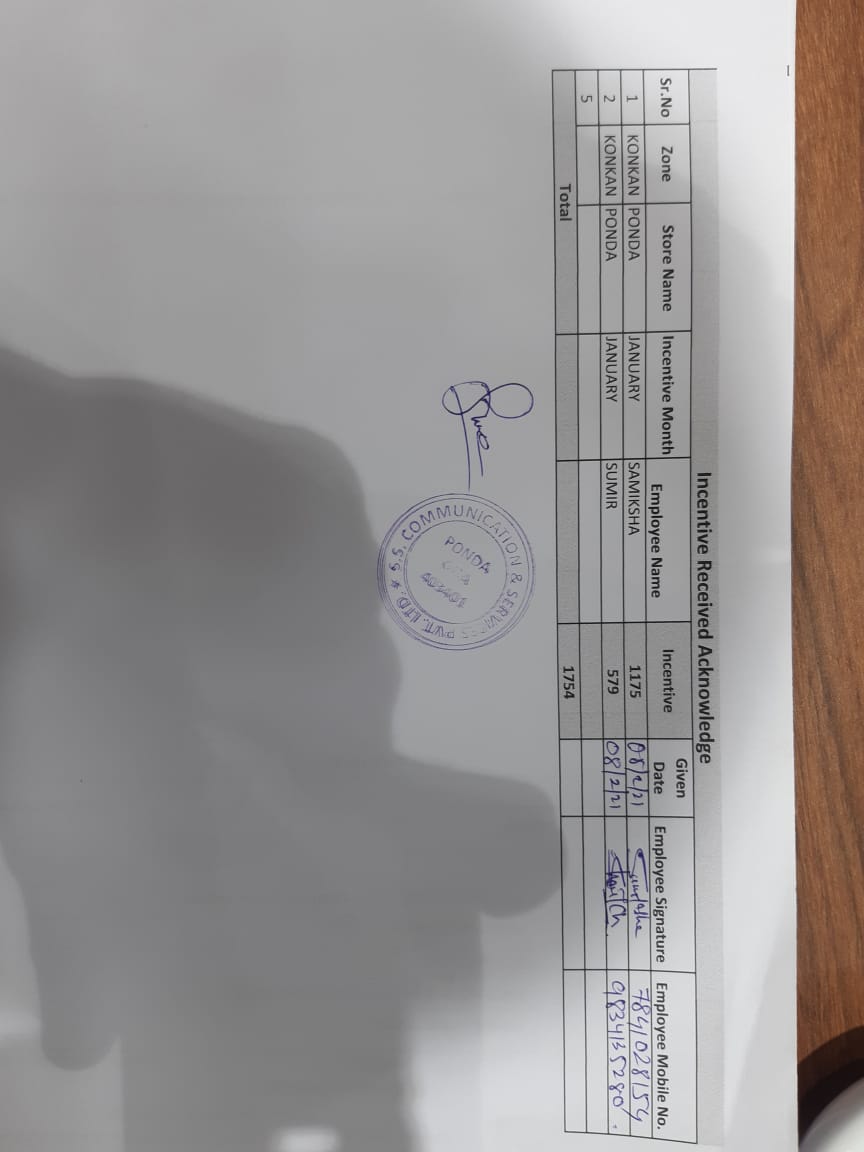 Incentive Received Acknowledge
Sr.No Zone Store Name Incentive Month Employee Name Incentive Given Date Employee Signature Employee Mobile No.
1 KONKAN PONDA JANUARY SAMIKSHA 1175 08/2/21 7841028154
2 KONKAN PONDA JANUARY SUMIR 579 08/2/21 9834135280
5
Total 1754
S.S. COMMUNICATION & SERVICES PVT. LTD *
PONDA
403401